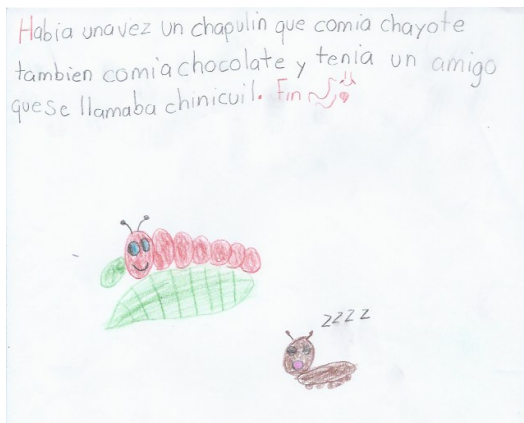 Habia unavez un chapulin que comia chayote
tambien comia chocolate y tenia un amigo
quese llamaba chinicuil. Fin
zzzz